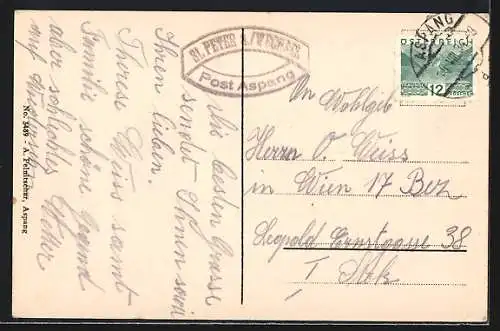 Die besten Grüsse
sendet Ihnen sowie
Ihren lieben.
Therese Weiss samt
Familie schöne Gegend
aber schlechtes Wetter
auf
No. 3489 - A. Feinlscher, Aspang
ST. PETER A/WECHSEL
Post Aspang
ASPANG
ÖSTERREICH
12
An Wohlgeb
Herrn O. Weiss
in Wien 17 Bez
Leopold Ernstgasse 38
I Stok